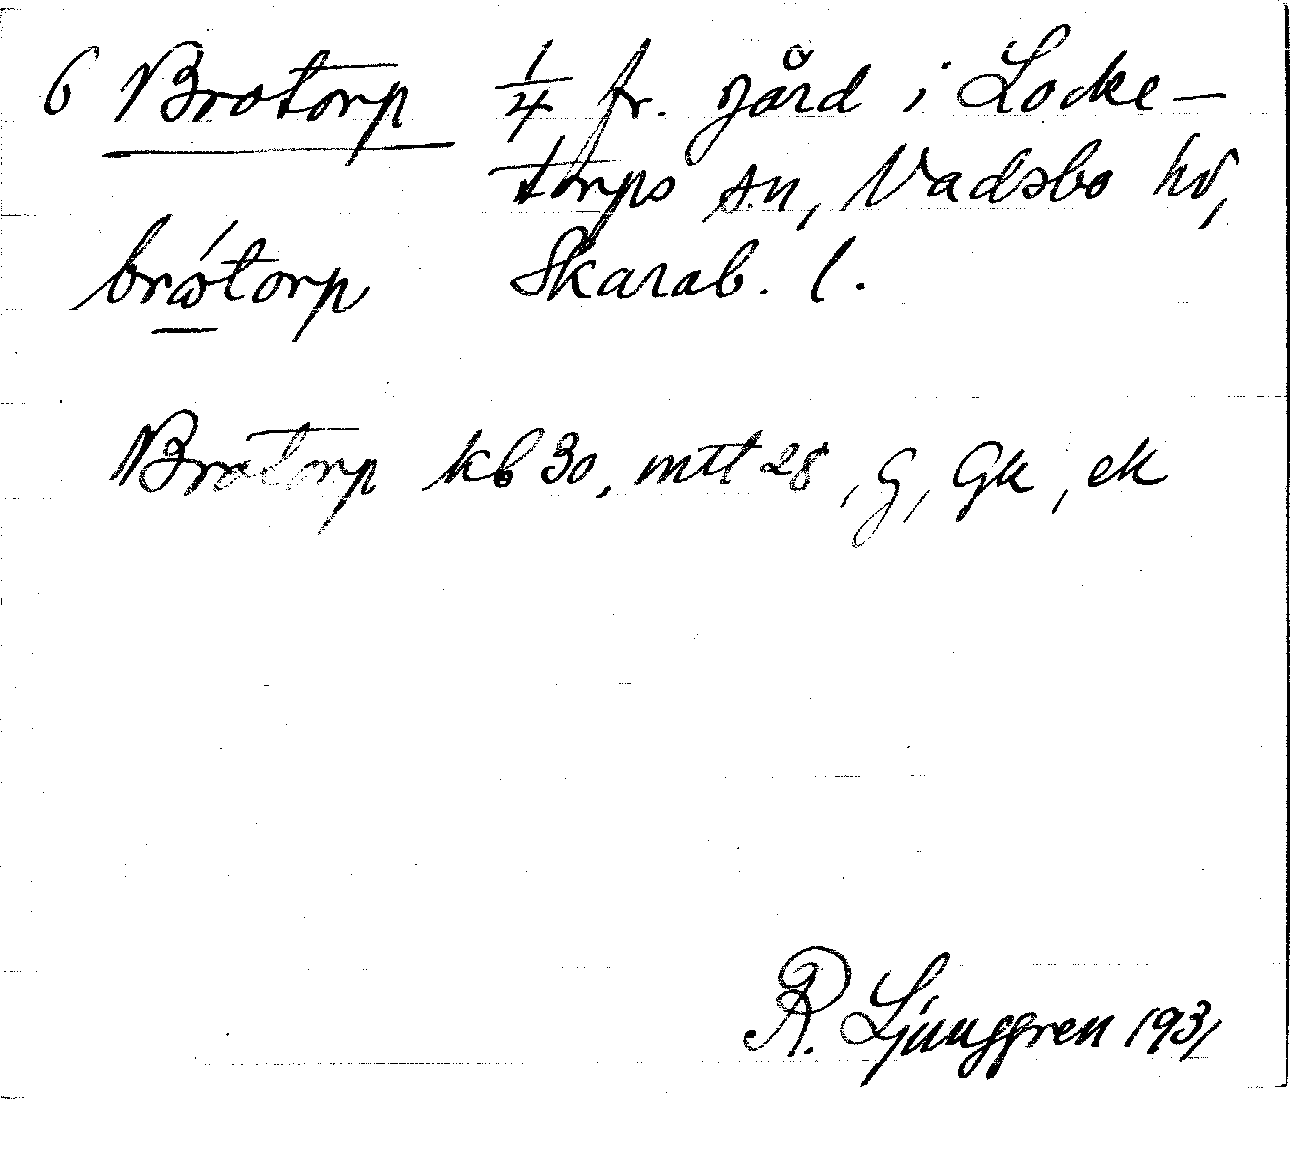 6 Brotorp 1/4 fr. gård i Locke-
torps sn, Vadsbo hd,
brótorp Skarab. l.
Brotorp kb 30, mtt 28, G, Gk, ek
R. Ljunggren 1931